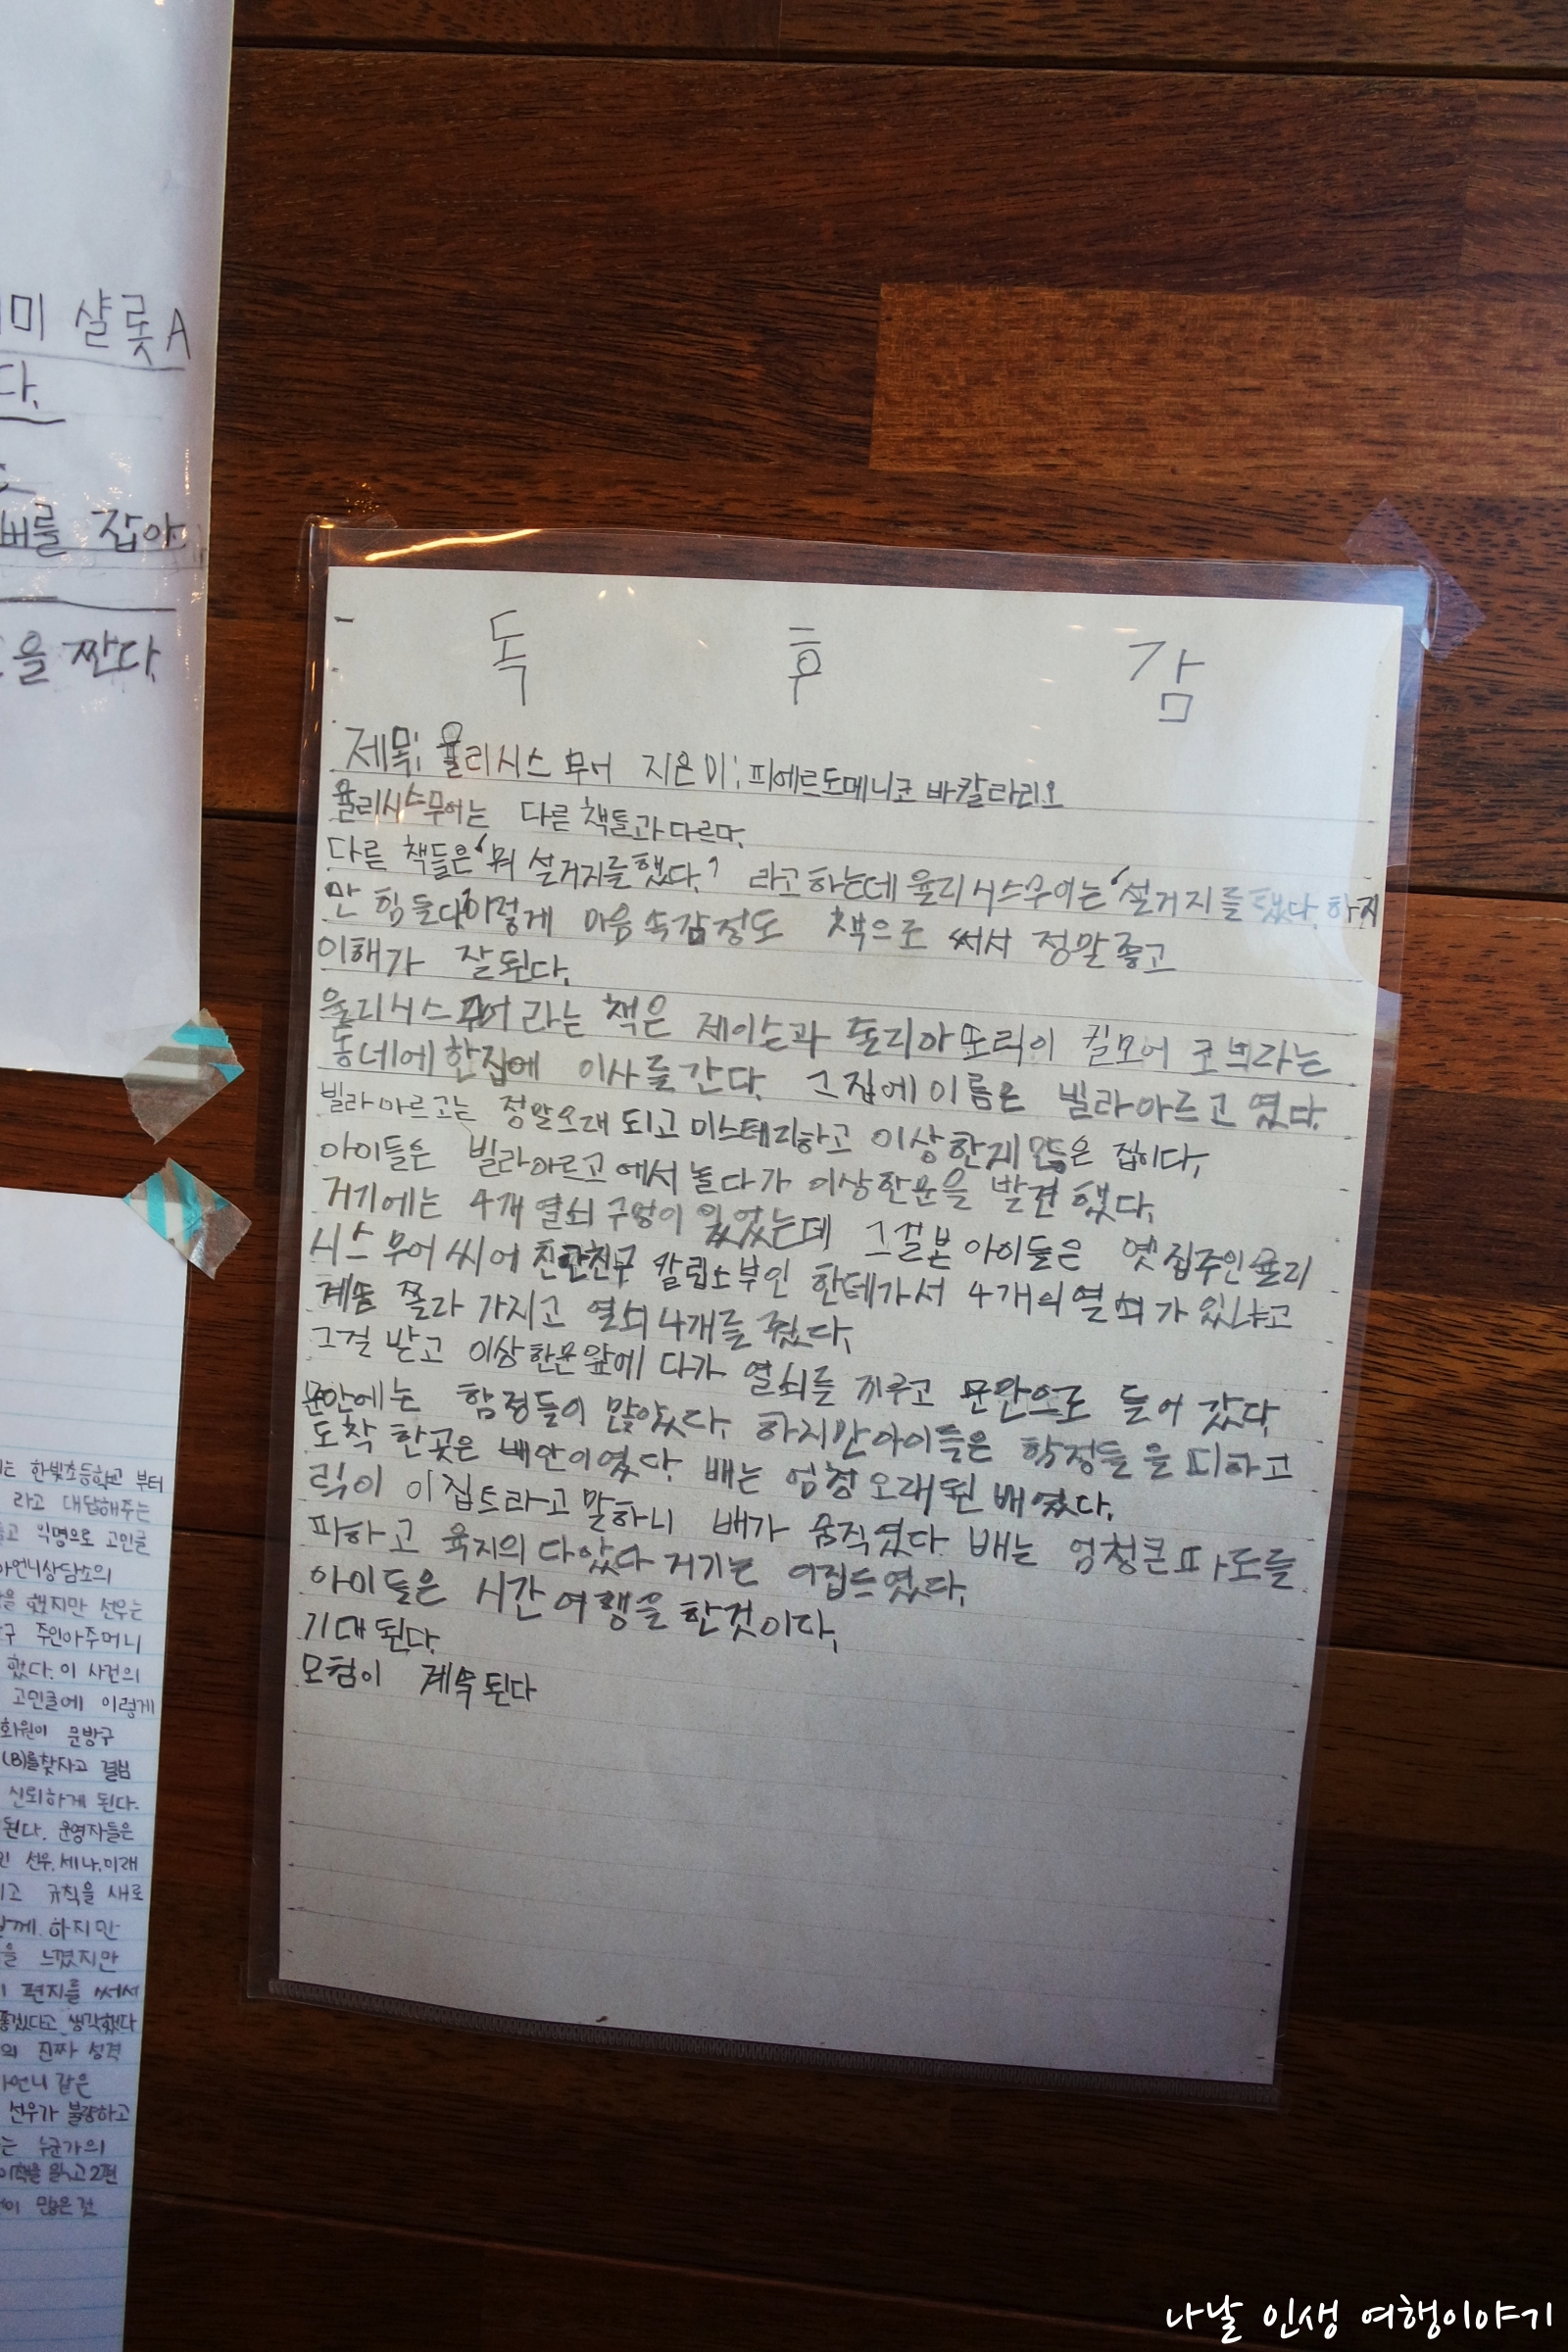 미 샬롯A
다.
버를 잡아
을 짠다.
독 후 감
제목: 율리시스 무어 지은이: 피에르도메니코 바칼라리오
율리시스무어는 다른 책들과 다르다.
다른 책들은 '뭐 설거지를 했다.' 라고 하는데 율리시스무어는 '설거지를 했다. 하지
만 힘들다' 이렇게 마음 속감정도 책으로 써서 정말좋고
이해가 잘된다.
율리시스무어 라는 책은 제이슨과 줄리아 또릭이 킬모어 코브라는
동네에 한집에 이사를 간다. 그집에 이름은 빌라아르고 였다.
빌라아르고는 정말오래 되고 미스테리하고 이상한게 많은 집이다.
아이들은 빌라아르고 에서 놀다가 이상한문을 발견 했다.
거기에는 4개 열쇠 구멍이 있었는데 그걸본 아이들은 옛 집주인 율리
시스 무어 씨에 친한친구 칼립소부인 한테가서 4개의 열쇠가 있냐고
계속 쫄라 가지고 열쇠 4개를 줬다.
그걸 받고 이상한문 앞에 다가 열쇠를 끼우고 문안으로 들어 갔다.
문안에는 함정들이 많았다. 하지만 아이들은 함정들을 피하고
도착 한곳은 배안이였다. 배는 엄청 오래된 배였다.
릭이 이집트라고 말하니 배가 움직였다. 배는 엄청큰 파도를
피하고 육지의 다았다 거기는 이집트였다.
아이들은 시간 여행을 한것이다.
기대된다.
모험이 계속된다
는 한빛초등학교 부터
라고 대답해주는
고 익명으로 고민글
언니상담소의
을 했지만 선우는
구 주인아주머니
했다. 이 사건의
고민글에 이렇게
화원이 문방구
(B)를찾자고 결심
신뢰하게 된다.
된다. 운영자들은
선우, 세나, 미래
고 규칙을 새로
함께. 하지만
을 느꼈지만
편지를 써서
좋겠다고 생각했다
의 진짜 성격
언니 같은
선우가 불쌍하고
는 누군가의
이책을 읽고 2편
이 많은 것
나날 인생 여행이야기